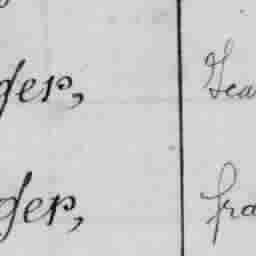 ger, Gea
ger, fra